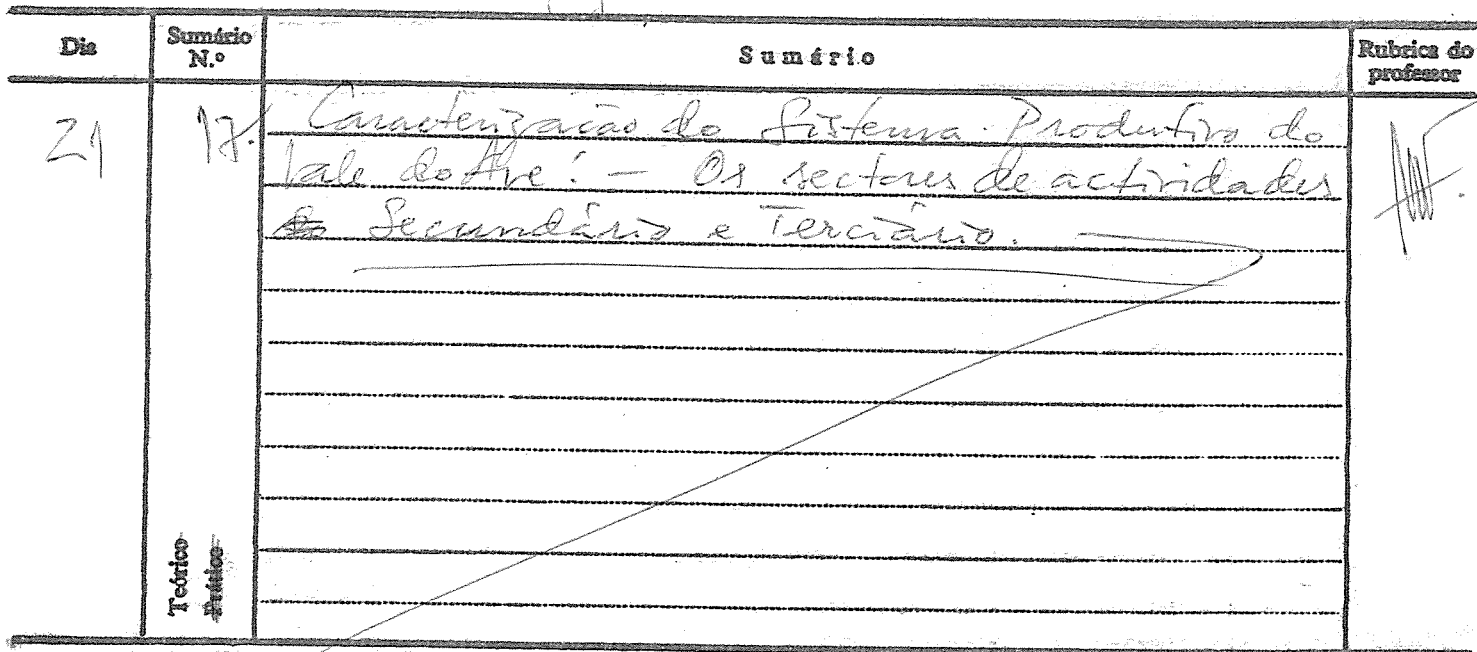 Dia
Sumário N.º
Sumário
Rubrica do professor
21
17.
Caracterização do Sistema Produtivo do
Vale do Ave: — Os sectores de actividades
Secundário e Terciário. —
Teórico
Prático